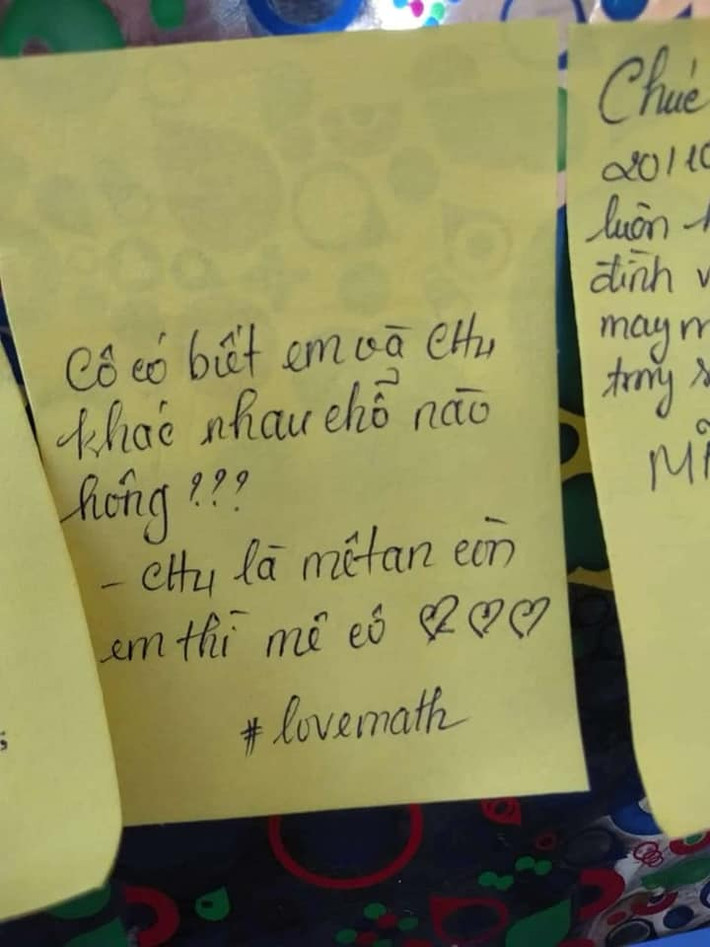 Cô có biết em và CH4
khác nhau chỗ nào
hông ???
- CH4 là mêtan còn
em thì mê cô ♡♡♡
# lovemath
Chúc
20/10
luôn
đình
may
trong